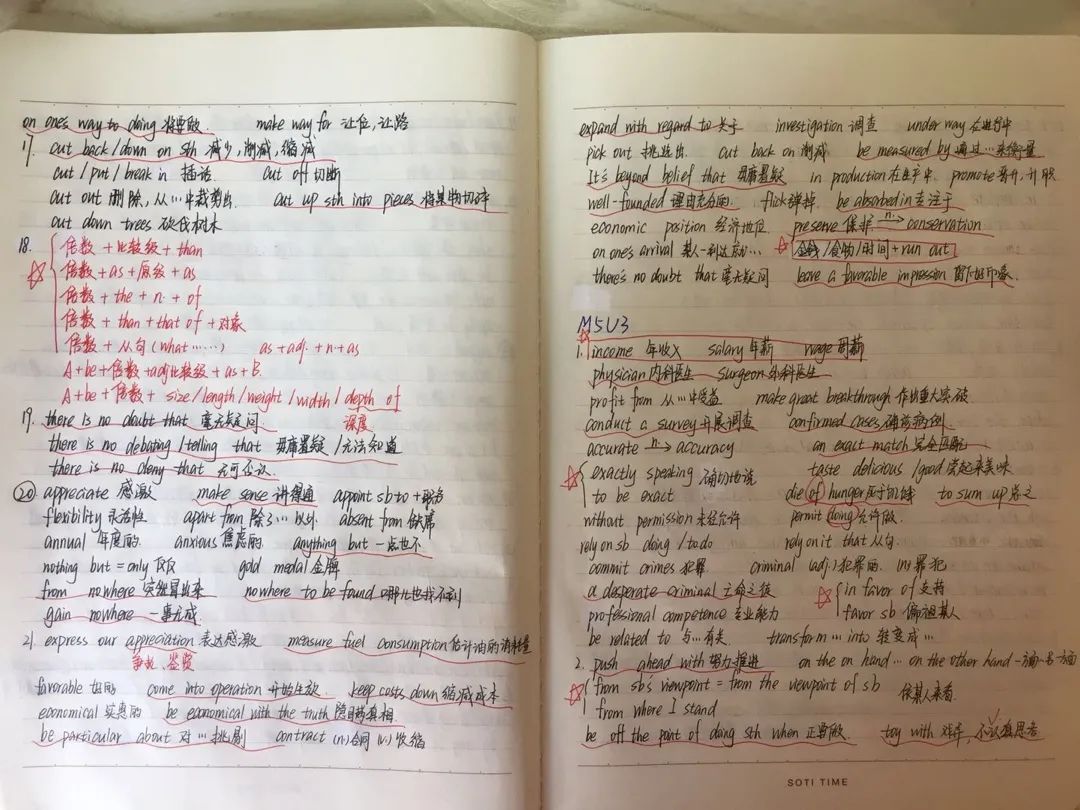 on one's way to doing 将要做 make way for 让位,让路
17. cut back/down on sth 减少,削减,缩减
cut/put/break in 插话 cut off 切断
cut out 删除,从…中裁剪出 cut up sth into pieces 将某物切碎
cut down trees 砍伐树木
18. 倍数+比较级+than
倍数+as+原级+as
倍数+the+n.+of
倍数+than+that of+对象
倍数+从句(what……) as+adj.+n+as
A+be+倍数+adj比较级+as+B.
A+be+倍数+size/length/weight/width/depth of
深度
19. there is no doubt that 毫无疑问
there is no debating/telling that 毋庸置疑/无法知道
there is no deny that 无可否认
20 appreciate 感激 make sense 讲得通 appoint sb to+职务
flexibility 灵活性 apart from 除了…以外 absent from 缺席
annual 年度的 anxious 焦虑的 anything but 一点也不
nothing but = only 仅仅 gold medal 金牌
from nowhere 突然冒出来 nowhere to be found 哪儿也找不到
gain nowhere 一事无成
21. express our appreciation 表达感激 measure fuel consumption 估计油的消耗量
鉴赏
favorable 有利的 come into operation 开始生效 keep costs down 缩减成本
economical 实惠的 be economical with the truth 隐瞒真相
be particular about 对…挑剔 contract (n.)合同 (v.)收缩
expand with regard to 关于 investigation 调查 under way 在进行中
pick out 挑选出 cut back on 削减 be measured by 通过…来衡量
It's beyond belief that 毋庸置疑 in production 在生产中 promote 晋升,升职
well-founded 理由充分的 flick 弹掉 be absorbed in 专注于
economic position 经济地位 preserve 保护 n→ conservation
on one's arrival 某人一到达就… 金钱/食物/时间+run out
there's no doubt that 毫无疑问 leave a favorable impression 留下好印象
M5U3
1. income 年收入 salary 年薪 wage 周薪
physician 内科医生 surgeon 外科医生
profit from 从…中受益 make great breakthrough 作出重大突破
conduct a survey 开展调查 confirmed cases 确诊病例
accurate n→ accuracy an exact match 完全匹配
exactly speaking 确切地说 taste delicious/good 尝起来美味
to be exact die of hunger 死于饥饿 to sum up 总之
without permission 未经允许 permit doing 允许做.
rely on sb doing/to do rely on it that 从句.
commit crimes 犯罪 criminal (adj.)犯罪的. (n)罪犯
a desperate criminal 亡命之徒 in favor of 支持
professional competence 专业能力 favor sb 偏袒某人
be related to 与…有关 transform…into 转变成…
2. push ahead with 努力推进 on the on hand…on the other hand 一方面…另一方面
from sb's viewpoint = from the viewpoint of sb 依某人来看
from where I stand
be off the point of doing sth when 正要做 toy with 戏弄,不认真思考
SOTI TIME